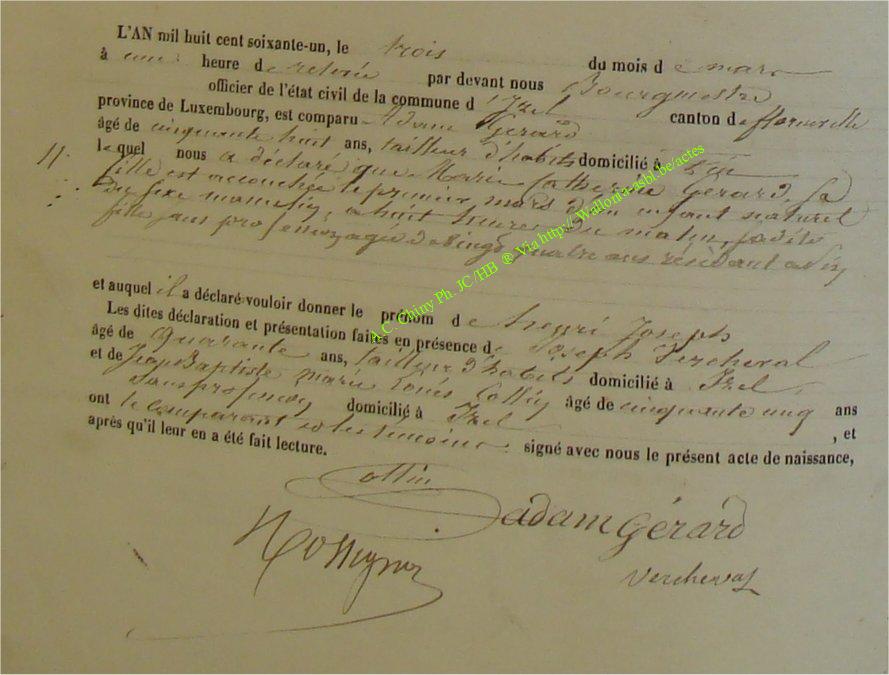 L'AN mil huit cent soixante-un, le trois du mois de mars
à une heure de relevée par devant nous Bourgmestre
officier de l'état civil de la commune d'Izel canton de florenville
province de Luxembourg, est comparu Adam Gerard
âgé de cinquante huit ans, tailleur d'habits domicilié à
lequel nous a déclaré que Marie Catherine Gerard, sa
11 fille est accouchée le premier mars d'un enfant naturel
du sexe masculin, a huit heures du matin, sa dite
fille sans profession agée de vingt quatre ans résidant a
et auquel il a déclaré vouloir donner le prénom de henri Joseph
Les dites déclaration et présentation faites en présence de Joseph Vercheval
âgé de quarante ans, tailleur d'habits domicilié à Izel
et de Jean Baptiste marie Louis Collin âgé de cinquante unq ans
sans profession domicilié à Izel , et
ont le comparant et les témoins signé avec nous le présent acte de naissance,
après qu'il leur en a été fait lecture.
Collin
adam Gérard
Rossignon
Vercheval
A.C. Chiny Ph. JC/HB ® Via http://Wallonia-asbl.be/actes